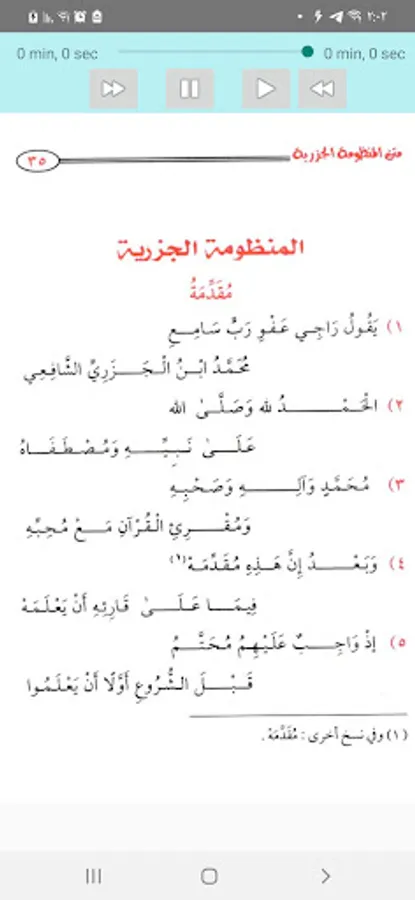 ٢:٠٢
0 min, 0 sec
0 min, 0 sec
متن المنظومة الجزرية
٣٥
المنظومة الجزرية
مُقَدِّمَةُ
١) يَقُولُ رَاجِي عَفْوِ رَبٍّ سَامِعِ
مُحَمَّدُ ابْنُ الْجَزَرِيِّ الشَّافِعِي
٢) الْحَمْدُ لله وَصَلَّىٰ الله
عَلَىٰ نَبِيِّهِ وَمُصْطَفَاهُ
٣) مُحَمَّدٍ وَآلِهِ وَصَحْبِهِ
وَمُقْرِئِ الْقُرْآنِ مَعْ مُحِبِّهِ
٤) وَبَعْدُ إِنَّ هَذِهِ مُقَدِّمَهْ(١)
فِيمَا عَلَىٰ قَارِئِهِ أَنْ يَعْلَمَهْ
٥) إِذْ وَاجِبٌ عَلَيْهِمُ مُحَتَّمُ
قَبْلَ الشُّرُوعِ أَوَّلًا أَنْ يَعْلَمُوا
(١) وفي نسخ أخرى: مُقَدَّمَة.